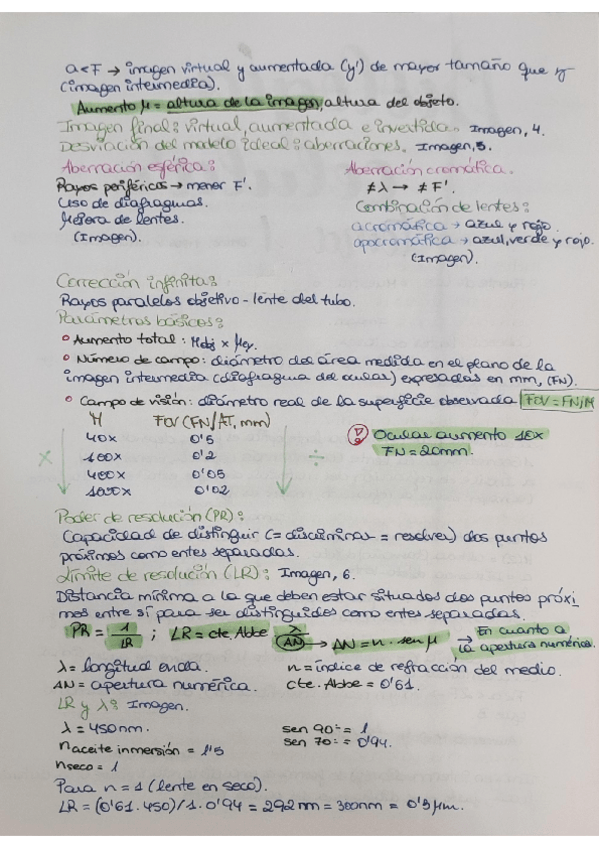 a<F → imagen virtual y aumentada (y') de mayor tamaño que y
(imagen intermedia).
Aumento μ = altura de la imagen, altura del objeto.
Imagen final: virtual, aumentada e invertida. Imagen, 4.
Desviación del modelo ideal: aberraciones. Imagen, 5.
Aberración esférica:
Rayos periféricos → menor F'.
Uso de diafragmas.
Mejora de lentes.
(Imagen).
Aberración cromática.
≠ λ → ≠ F'.
Combinación de lentes:
acromática → azul y rojo.
apocromática → azul, verde y rojo.
(Imagen).
Corrección infinita:
Rayos paralelos objetivo - lente del tubo.
Parámetros básicos:
Aumento total: Mobj × Mey.
Número de campo: diámetro del área medida en el plano de la
imagen intermedia (diafragma del ocular) expresadas en mm, (FN).
Campo de visión: diámetro real de la superficie observada FOV = FN/M
M FOV (FN/AT, mm)
40x 0'5
100x 0'2
400x 0'05
1000x 0'02
× ÷
Ocular aumento 10x
FN = 20mm.
Poder de resolución (PR):
Capacidad de distinguir (= discriminar = resolver) dos puntos
próximos como entes separados.
Límite de resolución (LR): Imagen, 6.
Distancia mínima a la que deben estar situados dos puntos próxi
mos entre sí para ser distinguidos como entes separados.
PR = 1/LR ; LR = cte Abbe λ/AN → AN = n · sen μ → En cuanto a
la apertura numérica.
λ = longitud onda. n = índice de refracción del medio.
AN = apertura numérica. cte. Abbe = 0'61.
LR y λ: Imagen.
λ = 450nm. sen 90º = 1
sen 70º = 0'94.
naceite inmersión = 1'5
nseco = 1
Para n = 1 (lente en seco).
LR = (0'61 · 450)/1 · 0'94 = 292 nm = 300nm = 0'3 μm.